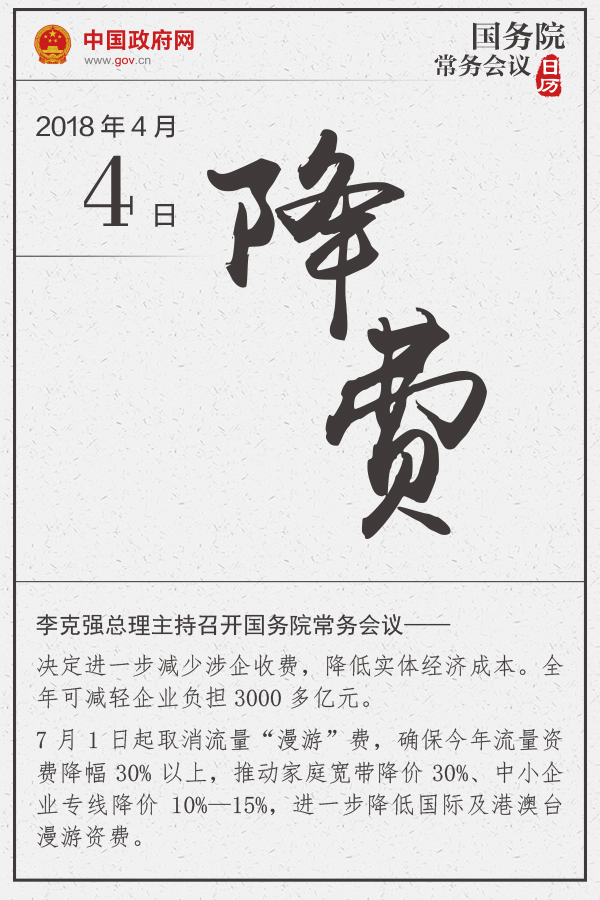 中国政府网
www.gov.cn
国务院
常务会议
日历
2018年4月
4日
降
费
李克强总理主持召开国务院常务会议——
决定进一步减少涉企收费，降低实体经济成本。全
年可减轻企业负担 3000 多亿元。
7 月 1 日起取消流量“漫游”费，确保今年流量资
费降幅 30% 以上，推动家庭宽带降价 30%、中小企
业专线降价 10%—15%，进一步降低国际及港澳台
漫游资费。